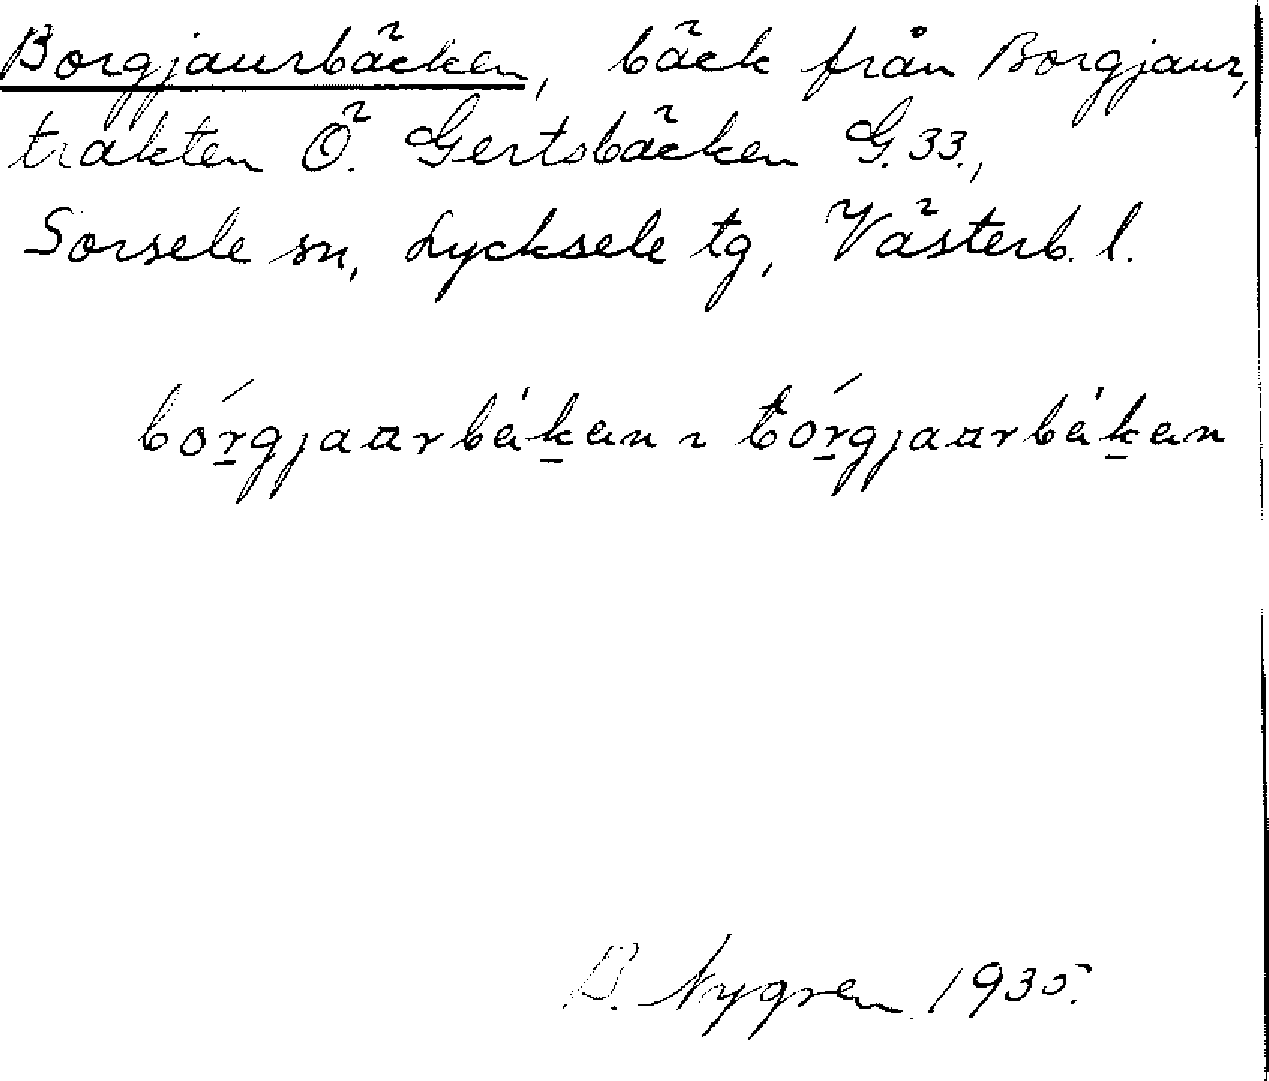 Borgjaurbäcken, bäck från Borgjaur,
trakten Ö. Gertsbäcken G.33.,
Sorsele sn, Lycksele tg, Västerb. l.
bórgjaarbäkan ~ bórgjaarbäkan
B. Nygren 1935.